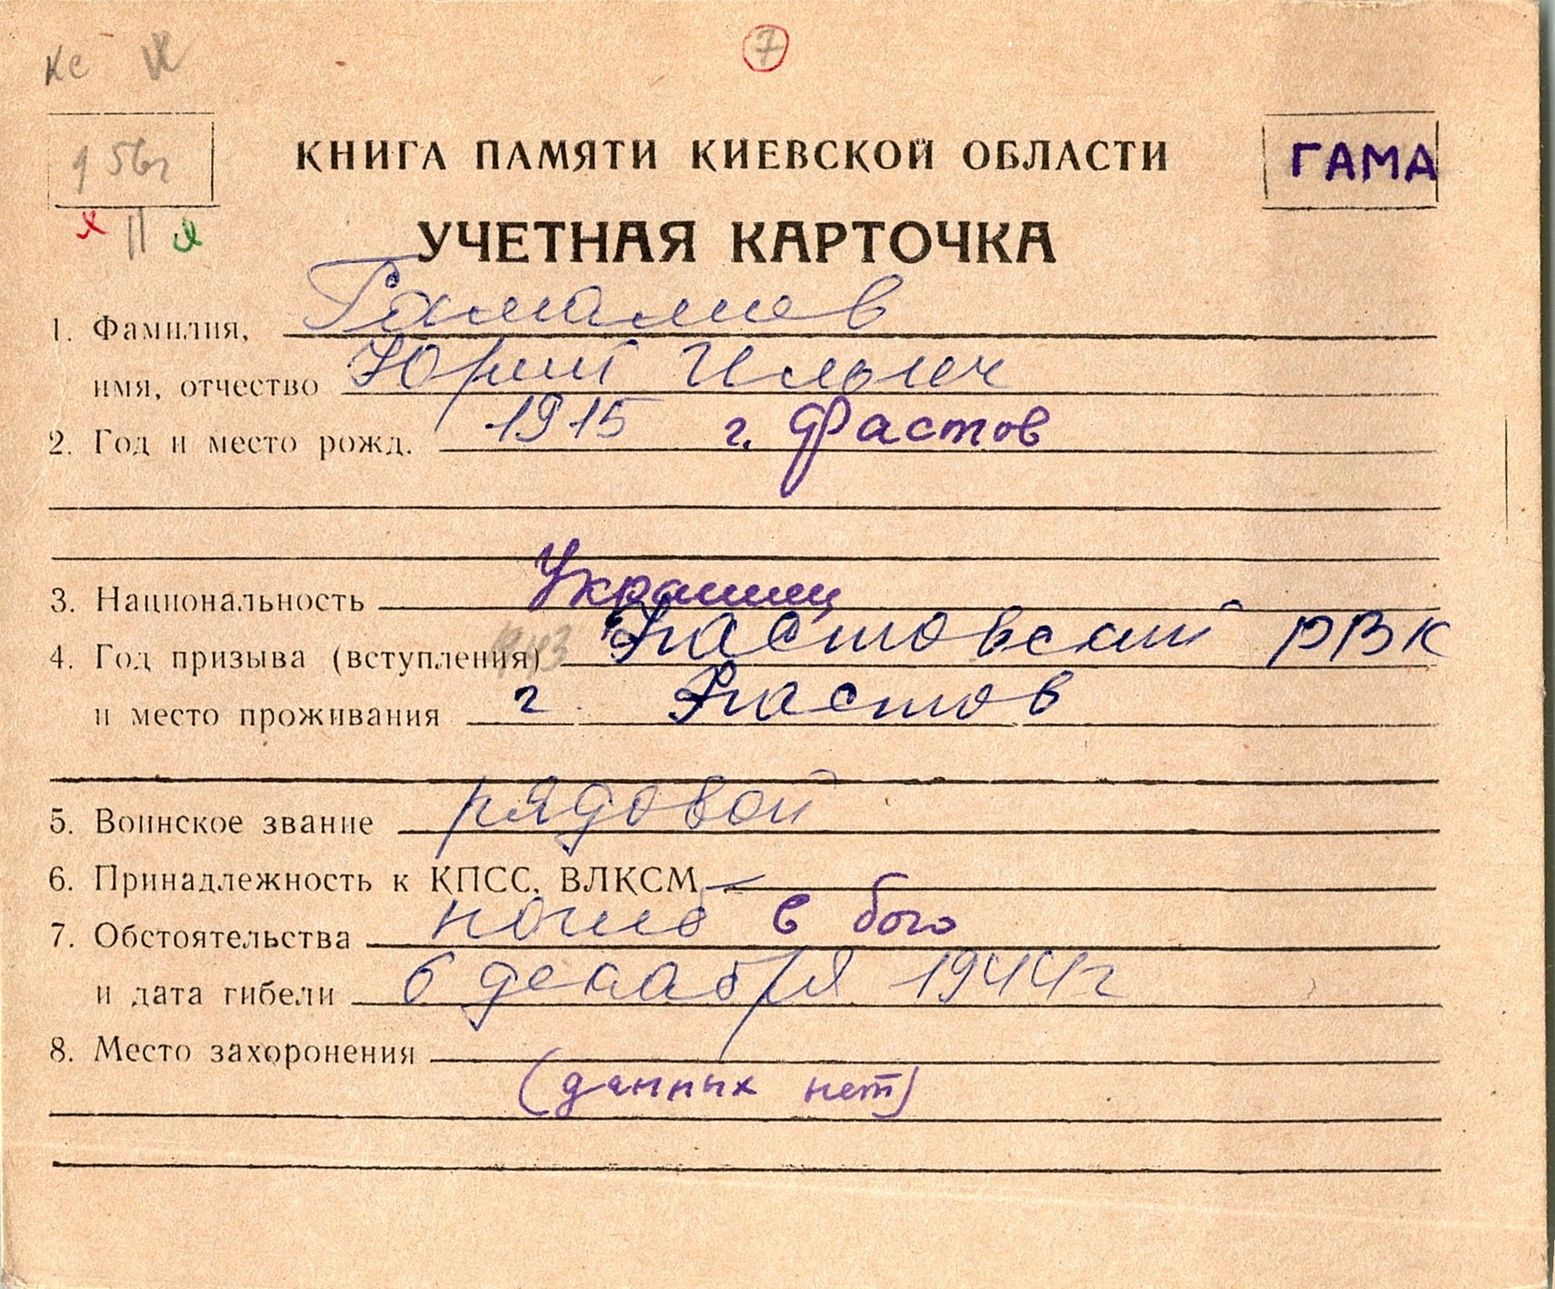 Кс
7
КНИГА ПАМЯТИ КИЕВСКОЙ ОБЛАСТИ
ГАМА
УЧЕТНАЯ КАРТОЧКА
1. Фамилия, Гамалиев
имя, отчество Юрий Ильич
2. Год и место рожд. 1915 г. Фастов
3. Национальность Украинец
4. Год призыва (вступления) 1943 Фастовский РВК
и место проживания г. Фастов
5. Воинское звание рядовой
6. Принадлежность к КПСС, ВЛКСМ —
7. Обстоятельства погиб в бою
и дата гибели 6 декабря 1944 г
8. Место захоронения
(данных нет)